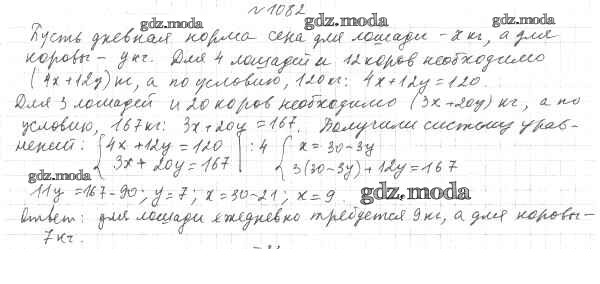 №1082
gdz.moda gdz.moda gdz.moda
Пусть дневная норма сена для лошади - x кг, а для
коровы - y кг. Для 4 лошадей и 12 коров необходимо
(4x+12y) кг, а по условию, 120 кг: 4x+12y=120.
Для 3 лошадей и 20 коров необходимо (3x+20y) кг, а по
условию, 167 кг: 3x+20y=167. Получили систему урав-
нений: { 4x+12y=120 | :4 { x=30-3y
3x+20y=167 3(30-3y)+12y=167
gdz.moda
11y=167-90; y=7; x=30-21; x=9. gdz.moda
Ответ: для лошади ежедневно требуется 9 кг, а для коровы -
7 кг.